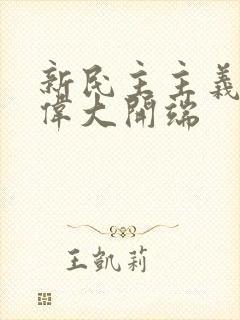 新民主主義
偉大開端
王凱莉